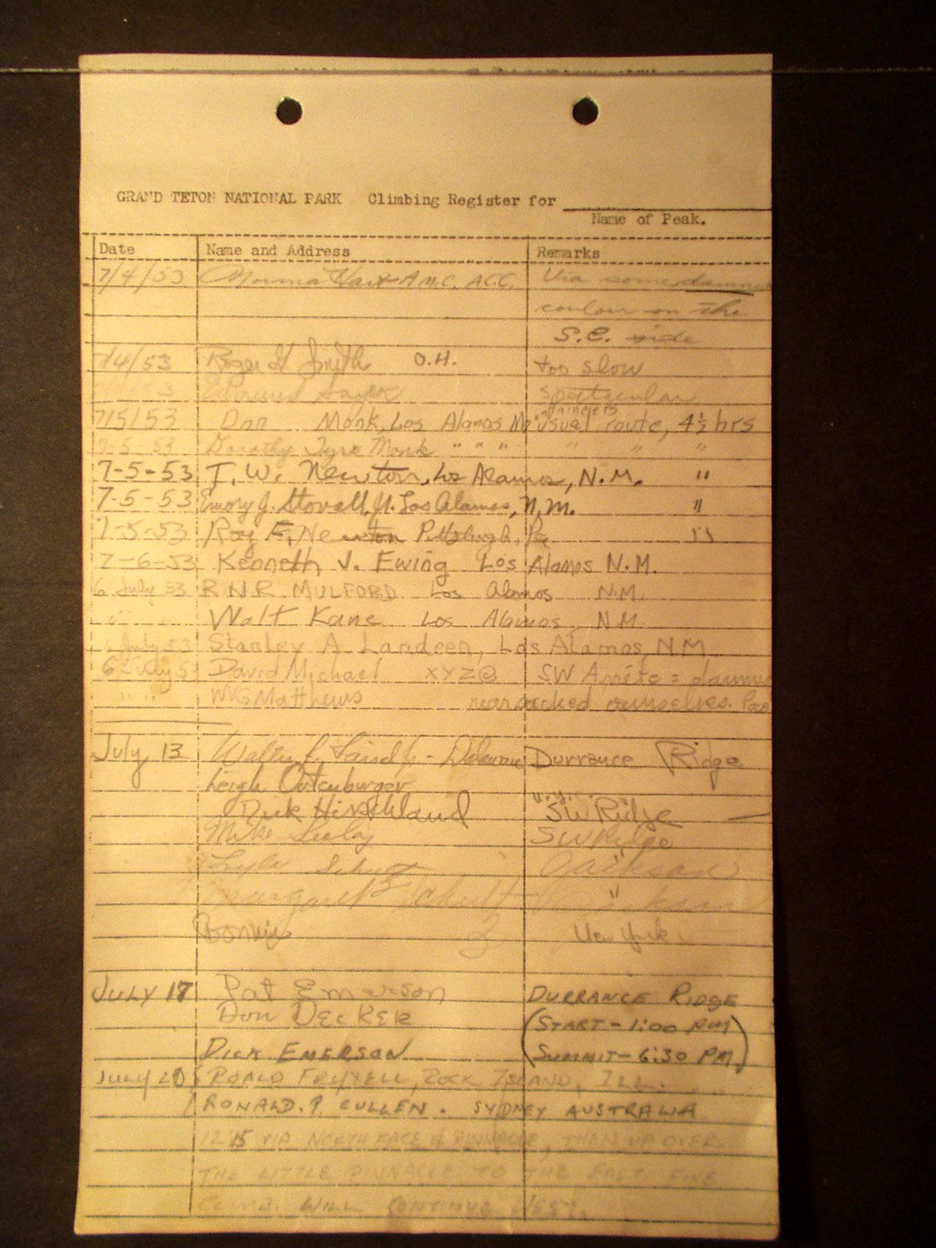 GRAND TETON NATIONAL PARK Climbing Register for
Name of Peak.
Date Name and Address Remarks
7/4/53 A.M.C. A.C.C. Via some damned
couloir on the
S.E. side
7/4/53 Roger H Smith O.H. too slow
Spectacular
7/5/53 Don Monk, Los Alamos usual route, 4½ hrs
7-5-53 Dorothy Monk " " " " "
7-5-53 T. W. Newton, Los Alamos, N.M. "
7-5-53 Emory J. Stovall, Jr. Los Alamos, N.M. "
7-5-53 Roy F. Newton Pittsburgh, Pa "
7-6-53 Kenneth J. Ewing Los Alamos N.M.
6 July 53 R.N.R. MULFORD Los Alamos N.M.
" " Walt Kane Los Alamos, N.M.
6 July 53 Stanley A. Landeen, Los Alamos, N.M.
6 July 53 David Michael XYZ SW Arrête =
" " WG Matthews near ourselves.
July 13 Durrance Ridge
Leigh Ortenburger
Dick Hirschland SW Ridge
Mike SW Ridge
Jackson
Margaret Schultz Jackson
Bonnie New York
JULY 17 Pat Emerson DURRANCE RIDGE
Don DECKER (START - 1:00 PM)
DICK EMERSON (SUMMIT - 6:30 PM)
JULY 20 ROALD FRYXELL, ROCK ISLAND, ILL.
RONALD. P CULLEN. SYDNEY AUSTRALIA
12 15 VIA NORTH FACE PINNACLE, THEN UP OVER
THE LITTLE PINNACLE TO THE EAST. FINE
CLIMB. WILL CONTINUE WEST.